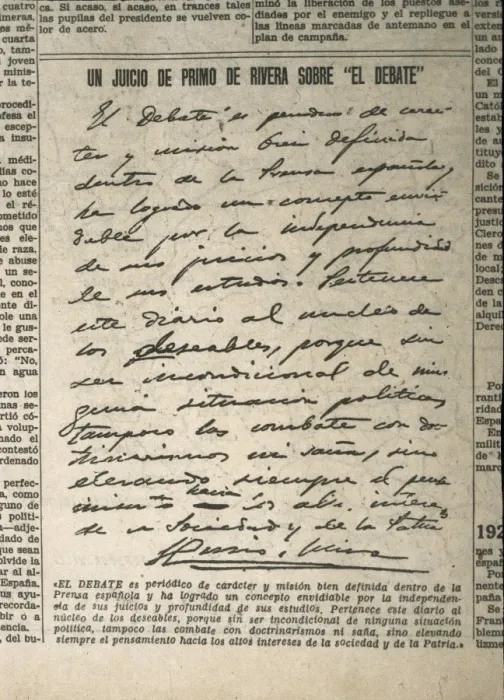 cuatro
imeras,
cuarta
joven
minis-
ca. Si acaso, si acaso, en trances tales
las pupilas del presidente se vuelven co-
lor de acero.
minó la liberación de los puestos ase-
diados por el enemigo y el repliegue a
las líneas marcadas de antemano en el
plan de campaña.
UN JUICIO DE PRIMO DE RIVERA SOBRE "EL DEBATE"
El Debate es periodico de carac-
ter y misión bien definida
dentro de la Prensa española,
ha logrado un concepto envi-
diable por la independencia
de sus juicios y profundidad
de sus estudios. Pertenece
este diario al nucleo de
los deseables, porque sin
ser incondicional de nin-
guna situación política,
tampoco las combate con doc-
trinarismos ni saña, sino
elevando siempre el pensa-
miento hacia los altos intereses
de la Sociedad y de la Patria
«EL DEBATE es periódico de carácter y misión bien definida dentro de la
Prensa española y ha logrado un concepto envidiable por la independen-
cia de sus juicios y profundidad de sus estudios. Pertenece este diario al
núcleo de los deseables, porque sin ser incondicional de ninguna situación
política, tampoco las combate con doctrinarismos ni saña, sino elevando
siempre el pensamiento hacia los altos intereses de la sociedad y de la Patria.»